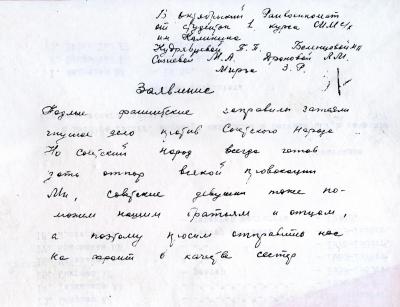 В октябрьский Райвоенкомат
от студенток 2 курса
им Калинина
Кудрявцевой Т. П.
Сысоевой М. А. Дроновой А.М.
Мирза Э. Р.
Заявление
Подлые фашистские заправилы затаели
гнусное дело против Советского народа
Но советский народ всегда готов
дать отпор всякой провокации
Мы, советские девушки тоже по-
можем нашим братьям и отцам,
а поэтому просим отправить нас
на фронт в качестве сестер